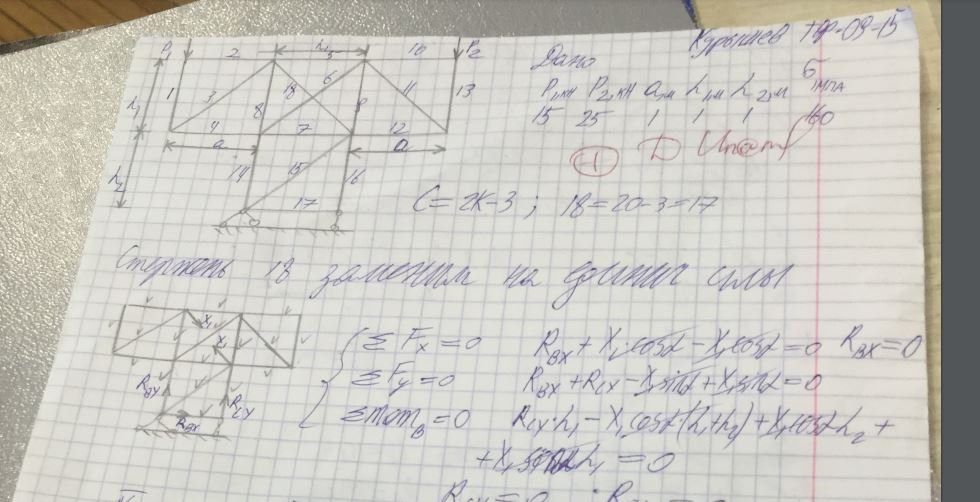 P₁ 2 h₅ 10 P₂
1 3 8 18 6 9 11 13
h₁ 4 7 12
a a
h₂ 14 15 16
17
Дано
Курышев
P₁, кН P₂, кН a, м h₁, м h₂, м б, МПа
15 25 1 1 1 160
C = 2K-3 ; 18 = 20-3 = 17
Стержень 18 заменим на единич силы
X₁
X₁
R_BY R_CY
R_BX
ΣF_x = 0 R_BX + X₁·cosα - X₁cosα = 0 R_BX = 0
ΣF_y = 0 R_BX + R_CY - X₁sinα + X₁sinα = 0
Σmom_B = 0 R_CY·h₁ - X₁cosα(h₁+h₂) + X₁cosα·h₂ +
+ X₁ h₁ = 0